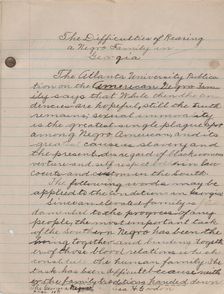 The Difficulties of Rearing
a Negro Family in
Georgia
The Atlanta University Publica
tion on the American Negro Fam
ily says that While then the ten
dencies are hopeful, still the truth
remains; sexual immorality
is the greatest single plague spot
among Negro Americans and its
great cause is slavery and
the present disregard of black women
virtue and self respect both in law
courts and custom in the South.
The following words may be
applied to the condition in Georgia
Since an elevated family is
fundamental to the progress of any
people the most important task
of the Southern Negro has been the
living together and binding togeth
er of those blood relations which
constitute the human family. The
task has been difficult because neith
er the family traditions handed down